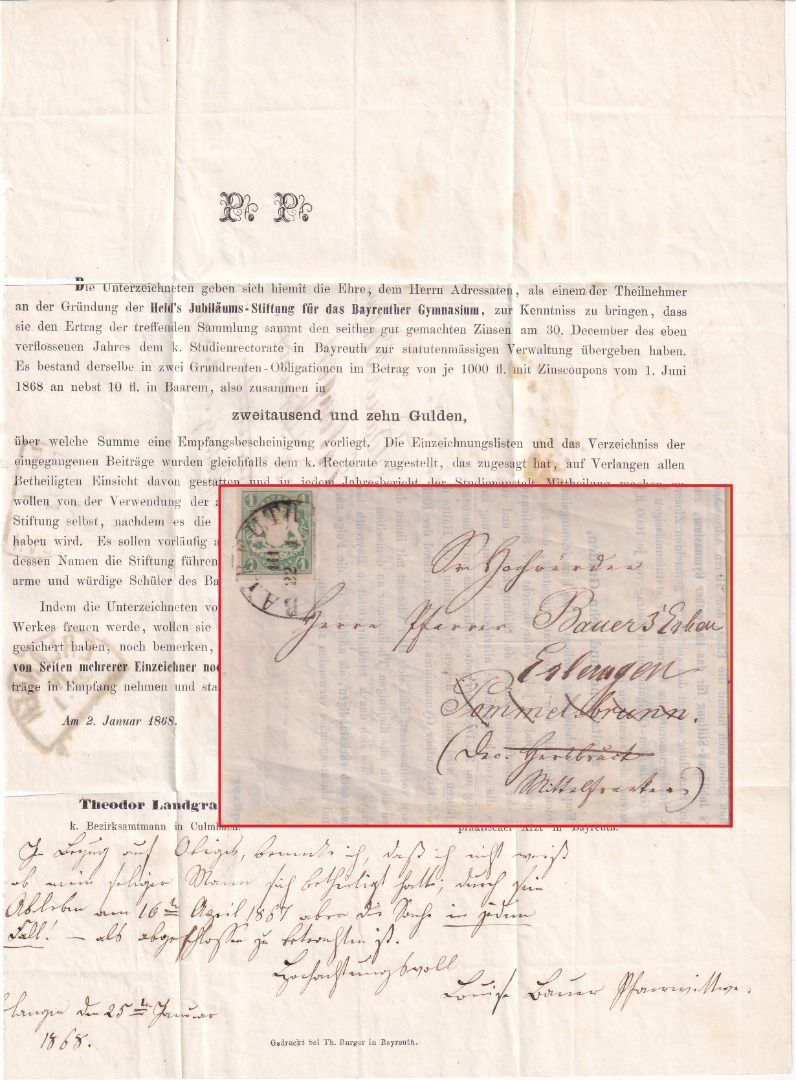 P. P.
Die Unterzeichneten geben sich hiemit die Ehre, dem Herrn Adressaten, als einem der Theilnehmer
an der Gründung der Held's Jubiläums-Stiftung für das Bayreuther Gymnasium, zur Kenntniss zu bringen, dass
sie den Ertrag der treffenden Sammlung sammt den seither gut gemachten Zinsen am 30. December des eben
verflossenen Jahres dem k. Studienrectorate in Bayreuth zur statutenmässigen Verwaltung übergeben haben.
Es bestand derselbe in zwei Grundrenten-Obligationen im Betrag von je 1000 fl. mit Zinscoupons vom 1. Juni
1868 an nebst 10 fl. in Baarem, also zusammen in
zweitausend und zehn Gulden,
über welche Summe eine Empfangsbescheinigung vorliegt. Die Einzeichnungslisten und das Verzeichniss der
eingegangenen Beiträge wurden gleichfalls dem k. Rectorate zugestellt, das zugesagt hat, auf Verlangen allen
Betheiligten Einsicht davon gestatten und in jedem Jahresbericht der Studienanstalt Mittheilung machen zu
wollen von der Verwendung der
Stiftung selbst, nachdem es die
haben wird. Es sollen vorläufig
dessen Namen die Stiftung führen
arme und würdige Schüler des
Indem die Unterzeichneten
Werkes freuen werde, wollen sie
gesichert haben, noch bemerken,
von Seiten mehrerer Einzeichner
träge in Empfang nehmen und
Am 2. Januar 1868.
Theodor
k. Bezirksamtmann in Culmbach.
praktischer Arzt in Bayreuth.
1 1
BAIREUTH
1 1
Sr Hochwürden
Herrn Pfarrer Bauer's Erben
Erlangen
Pommelsbrunn.
(Mittelfranken)
In Bezug auf Obiges, bemerke ich, daß ich nicht weiß
ob mein seliger Mann sich betheiligt hatte, durch sein
Ableben am 16ten April 1867 aber die Sache in jedem
Fall! – als abgeschlossen zu betrachten ist.
Hochachtungsvoll
Louise Bauer Pfarrwittwe.
langen den 25ten Januar
1868.
Gedruckt bei Th. Burger in Bayreuth.